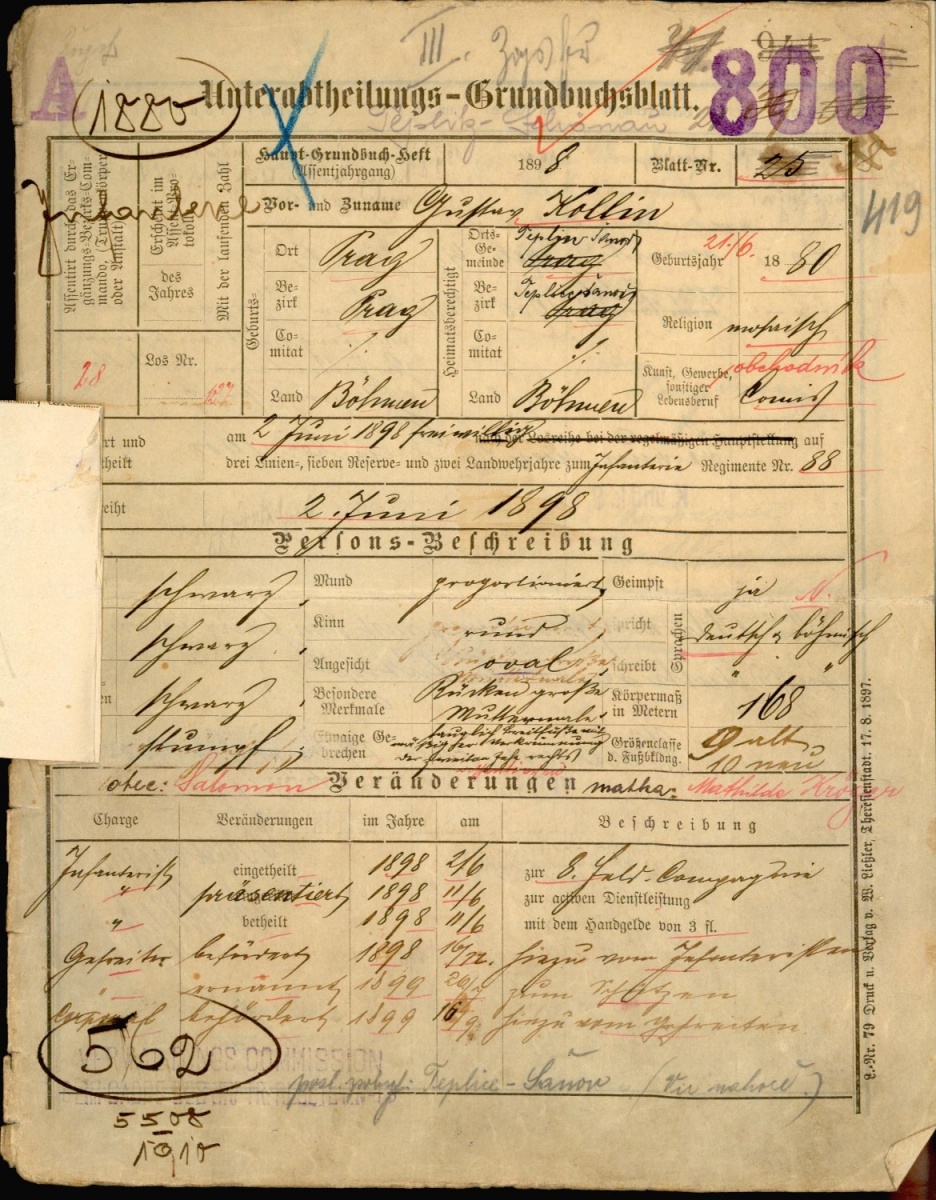 III.
A
800
1880
Unterabtheilungs-Grundbuchsblatt.
Teplitz-Schönau
Haupt-Grundbuch-Heft (Assentjahrgang) 1898 Blatt-Nr. 25
419
Infanterie
Assentirt durch das Ergänzungs-Bezirks-Commando, (Truppenkörper oder Anstalt)
Erscheint im Assent-Protokolle
des Jahres
Mit der laufenden Zahl
28
Los Nr.
Vor- und Zuname Gustav Kollin
Geburts-
Ort Prag
Bezirk Prag
Comitat ./.
Land Böhmen
Heimatsberechtigt
Ortsgemeinde Teplice Šanov Prag
Bezirk Teplice Šanov Prag
Comitat ./.
Land Böhmen
Geburtsjahr 21./6. 1880
Religion mosaisch
Kunst, Gewerbe, sonstiger Lebensberuf obchodník Comis
rt und
theilt
am 2 Juni 1898 freiwillig nach der Losreihe bei der regelmäßigen Hauptstellung auf
drei Linien-, sieben Reserve- und zwei Landwehrjahre zum Infanterie Regimente Nr. 88
eiht 2. Juni 1898
Persons-Beschreibung
schwarz, Mund proportioniert, Geimpft ja N.
schwarz, Kinn rund, spricht deutsch & böhmisch
Sprachen
Angesicht oval, schreibt " "
schwarz, Besondere Merkmale Rücken große Muttermale. Körpermaß in Metern 168
stumpf; Etwaige Gebrechen tauglich Breitfüße mit mäßiger Verkrümmung der zweiten Zehe rechts Größenclasse d. Fußbkldng. 9 alt 10 neu
otec: Salomon Veränderungen matka: Mathilde Kröger
Charge Veränderungen im Jahre am Beschreibung
Infanterist eingetheilt 1898 2/6 zur 8. Feld-Compagnie
" präsentiert 1898 11/6 zur activen Dienstleistung
" betheilt 1898 11/6 mit dem Handgelde von 3 fl.
Gefreiter befördert 1898 hiezu vom Infanteristen
ernannt 1899 zum Schützen
Corporal befördert 1899 16/9 hiezu vom Gefreiten
562
posl. pobyt: Teplice-Šanov (Viz nahoře)
5508
1910
L.-Nr. 79 Druck u. Verlag v. W. Ließler, Theresienstadt. 17. 8. 1897.